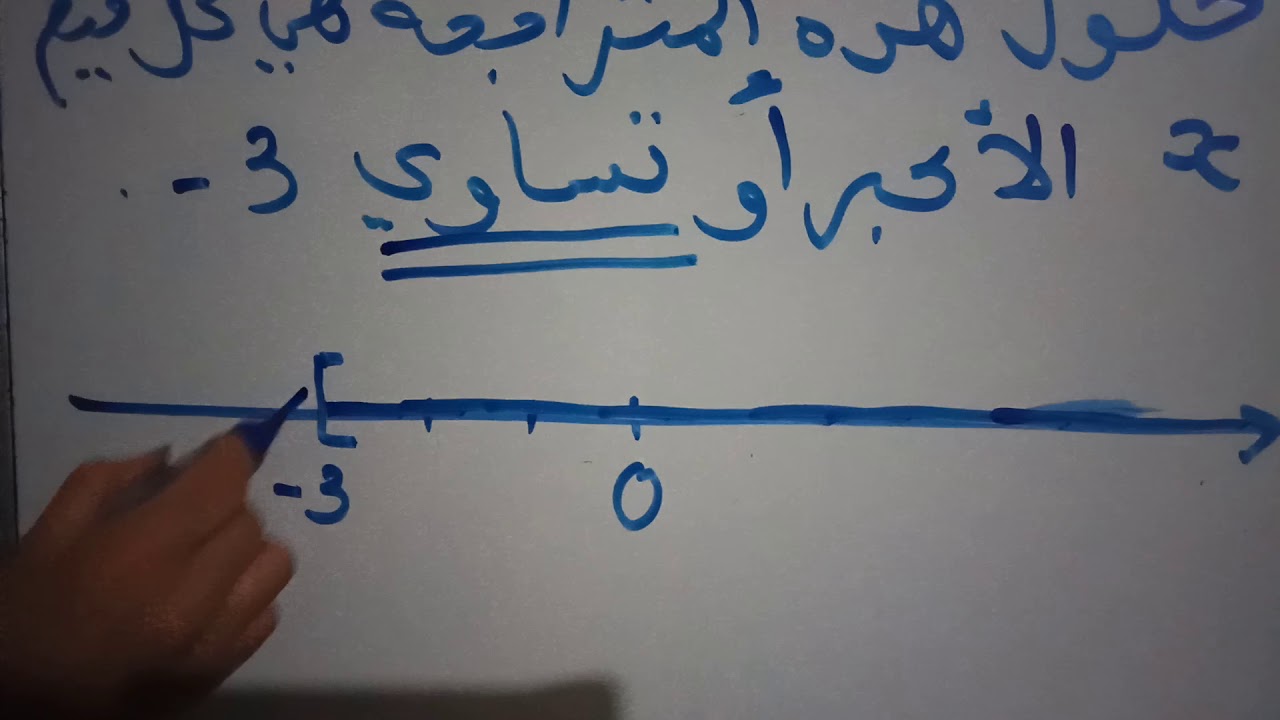 حلول هذه المتراجحة هي كل قيم
x الأكبر أو تساوي 3 -
-3 0